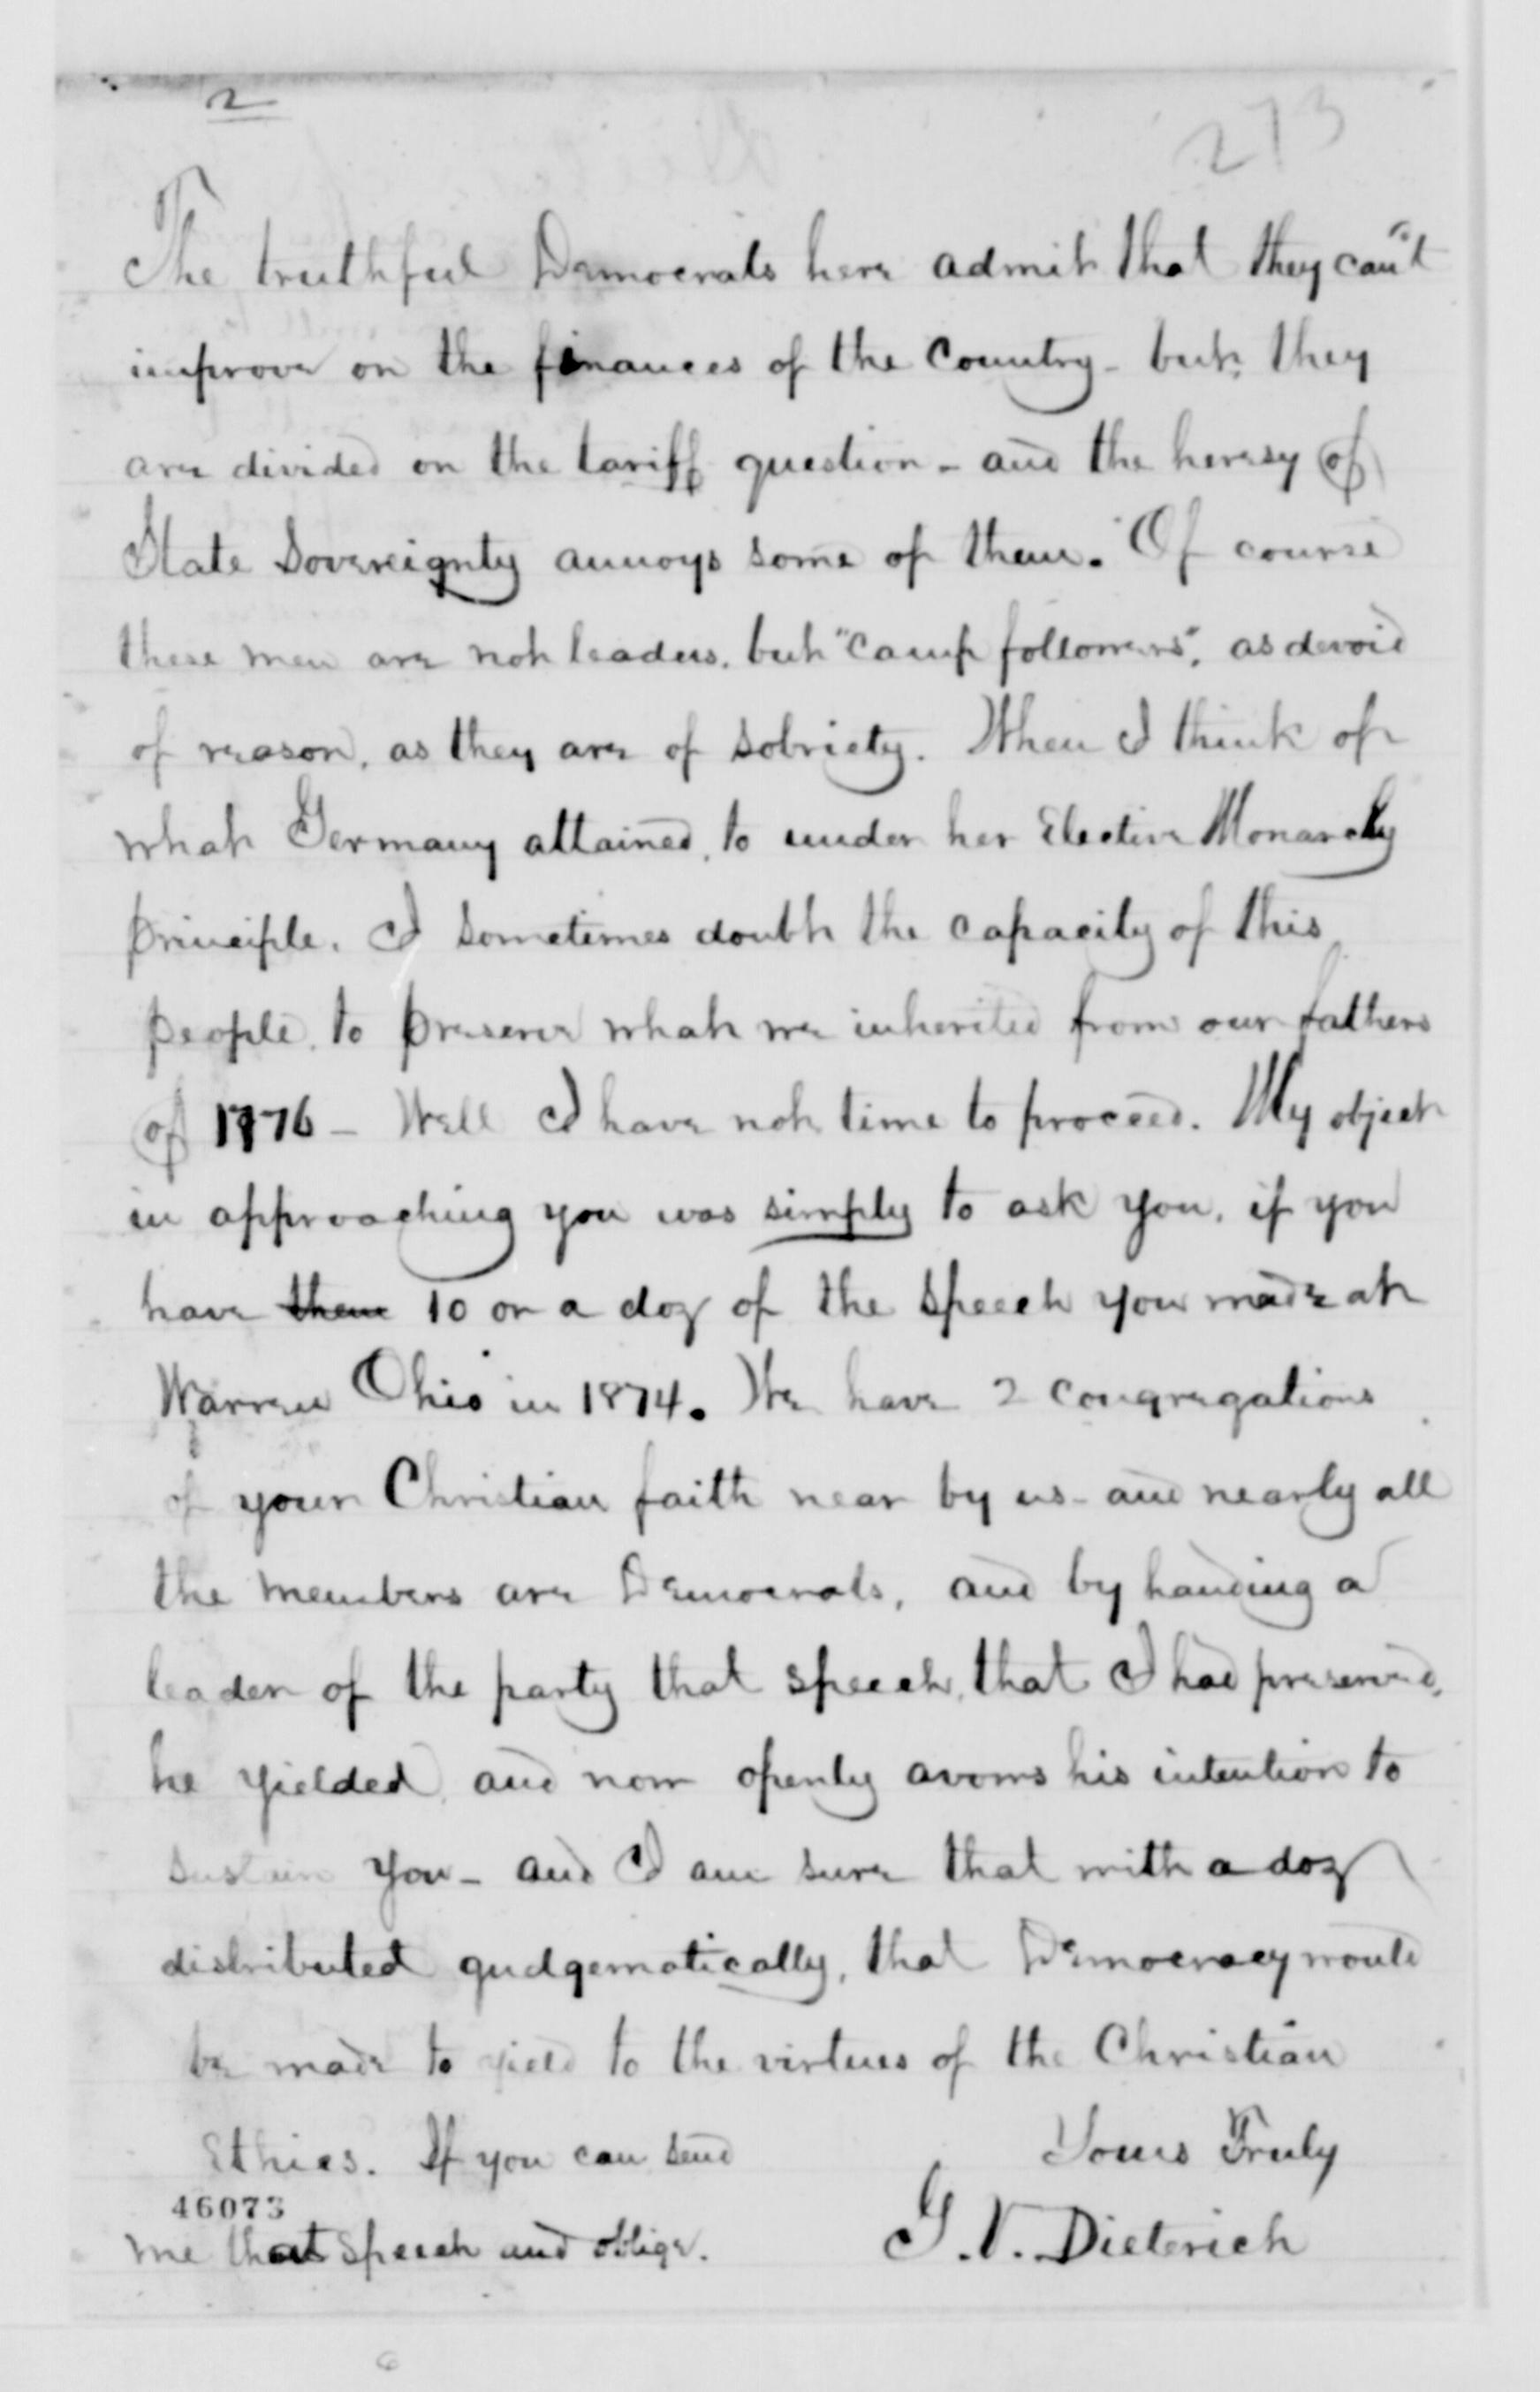 2
273
The truthful Democrats here admit that they can't
improve on the finances of the Country - but they
are divided on the tariff question - and the heresy of
State Sovereignty annoys some of them. Of course
these men are not leaders, but "camp followers", as devoid
of reason, as they are of sobriety. When I think of
what Germany attained, to under her Elective Monarchy
principle, I sometimes doubt the capacity of this
people, to preserve what we inherited from our fathers
of 1776 - Well I have not time to proceed. My object
in approaching you was simply to ask you, if you
have them 10 or a doz of the speech you made at
Warren Ohio in 1874. We have 2 congregations
of your Christian faith near by us - and nearly all
the members are Democrats, and by handing a
leader of the party that speech, that I had preserved,
he yielded, and now openly avows his intention to
sustain you - and I am sure that with a doz
distributed gudgematically, that Democracy would
be made to yield to the virtues of the Christian
Ethics. If you can send
Yours Truly
46073
me that speech and oblige.
G. V. Dieterich
6